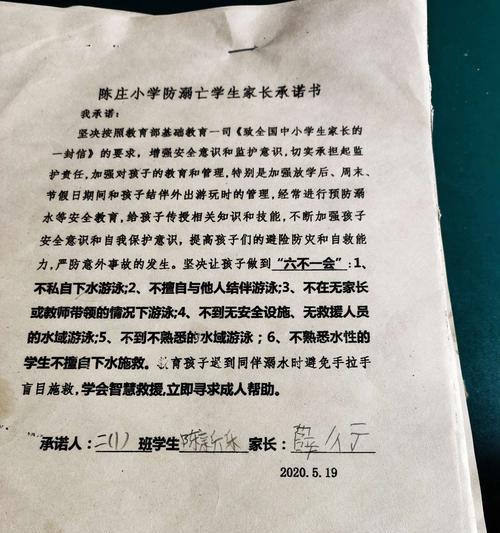 陈庄小学防溺亡学生家长承诺书
我承诺：
坚决按照教育部基础教育一司《致全国中小学生家长的
一封信》的要求，增强安全意识和监护意识，切实承担起监
护责任，加强对孩子的教育和管理，特别是加强放学后、周末、
节假日期间和孩子结伴外出游玩时的管理，经常进行预防溺
水等安全教育，给孩子传授相关知识和技能，不断加强孩子
安全意识和自我保护意识，提高孩子们的避险防灾和自救能
力，严防意外事故的发生。坚决让孩子做到“六不一会”:1、
不私自下水游泳;2、不擅自与他人结伴游泳;3、不在无家长
或教师带领的情况下游泳;4、不到无安全设施、无救援人员
的水域游泳;5、不到不熟悉的水域游泳；6、不熟悉水性的
学生不擅自下水施救。教育孩子遇到同伴溺水时避免手拉手
盲目施救，学会智慧救援,立即寻求成人帮助。
承诺人：二(1) 班学生陈 家长：薛
2020.5.19